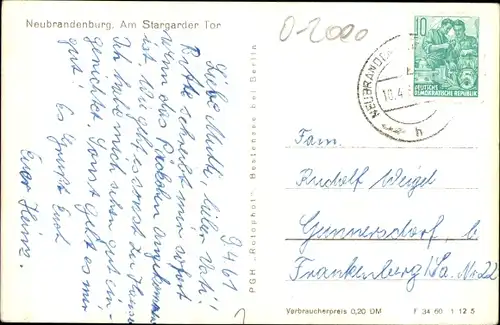 Neubrandenburg, Am Stargarder Tor
0-2000
10
DEUTSCHE
DEMOKRATISCHE REPUBLIK
NEUBRANDEN
10.4.
h
9.4.61
Liebe Mutti, lieber Vati!
Bitte schreibt mir sofort
wenn das Päckchen angekommen
ist. Wie geht es sonst zu Hause
Ich habe mich schon gut ein-
gerichtet. Sonst geht es mir
gut! Es grüßt Euch
Euer Heinz.
PGH „Rotophot" Bestensee bei Berlin
Fam.
Rudolf Weigel
Gunnersdorf b
Frankenberg/Sa. Nr. 22
Verbraucherpreis 0,20 DM
F 34 60 1 12 5